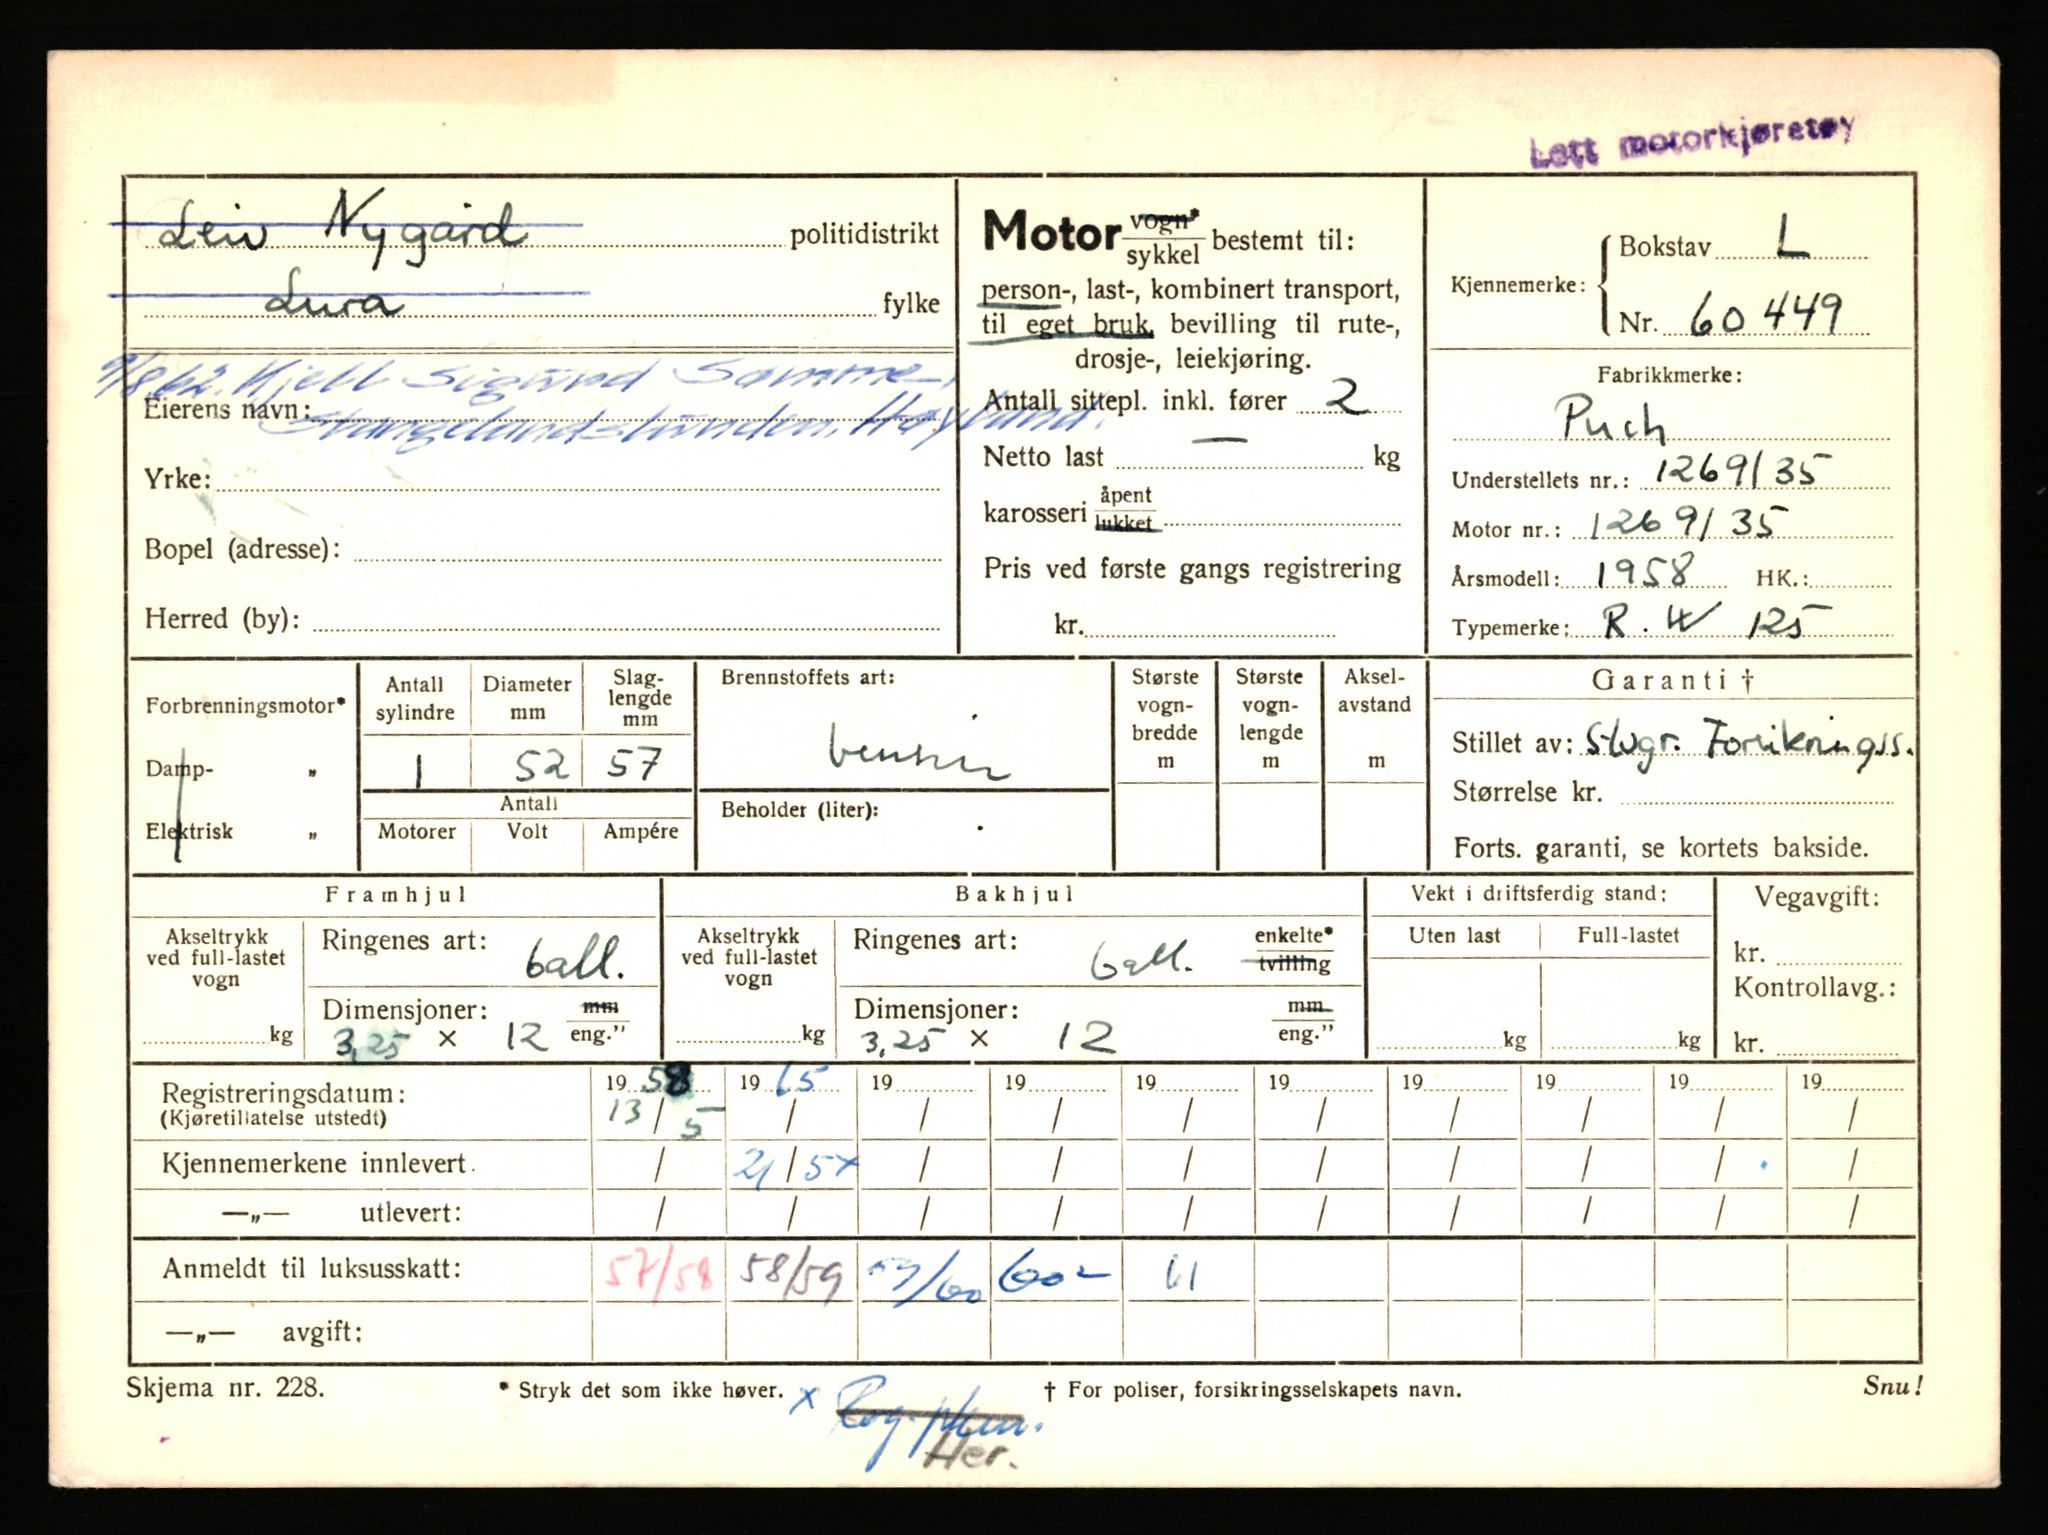 Lett motorkjøretøy
Leiv Nygård politidistrikt
Lura fylke
9/8 62. Kjell Sigurd Sømme,
Eierens navn: Stangelandslunden, Høyland.
Yrke:
Bopel (adresse):
Herred (by):
Motor vogn*/sykkel bestemt til:
person-, last-, kombinert transport,
til eget bruk, bevilling til rute-,
drosje-, leiekjøring.
Antall sittepl. inkl. fører 2
Netto last — kg
karosseri åpent/lukket
Pris ved første gangs registrering
kr.
Kjennemerke: Bokstav L
Nr. 60449
Fabrikkmerke:
Puch
Understellets nr.: 1269135
Motor nr.: 1269135
Årsmodell: 1958 HK.:
Typemerke: R.W 125
Forbrenningsmotor*
Damp- „
Elektrisk „
Antall sylindre 1
Diameter mm 52
Slag-lengde mm 57
Antall
Motorer Volt Ampére
Brennstoffets art:
bensin
Beholder (liter):
Største vogn-bredde m
Største vogn-lengde m
Aksel-avstand m
Garanti †
Stillet av: Stvgr. Forsikringss.
Størrelse kr.
Forts. garanti, se kortets bakside.
Framhjul
Akseltrykk ved full-lastet vogn kg
Ringenes art: ball.
Dimensjoner: mm/eng."
3,25 × 12
Bakhjul
Akseltrykk ved full-lastet vogn kg
Ringenes art: ball. enkelte*/tvilling
Dimensjoner: mm/eng."
3,25 × 12
Vekt i driftsferdig stand:
Uten last Full-lastet
kg kg
Vegavgift:
kr.
Kontrollavg.:
kr.
Registreringsdatum: 19 58 19 65 19 19 19 19 19 19 19 19
(Kjøretillatelse utstedt) 13/5 / / / / / / / / /
Kjennemerkene innlevert. / 21/5x / / / / / / / /
—„— utlevert: / / / / / / / / / /
Anmeldt til luksusskatt: 57/58 58/59 59/60 60² 61
—„— avgift:
Skjema nr. 228. * Stryk det som ikke høver. † For poliser, forsikringsselskapets navn. Snu!
x
Her.